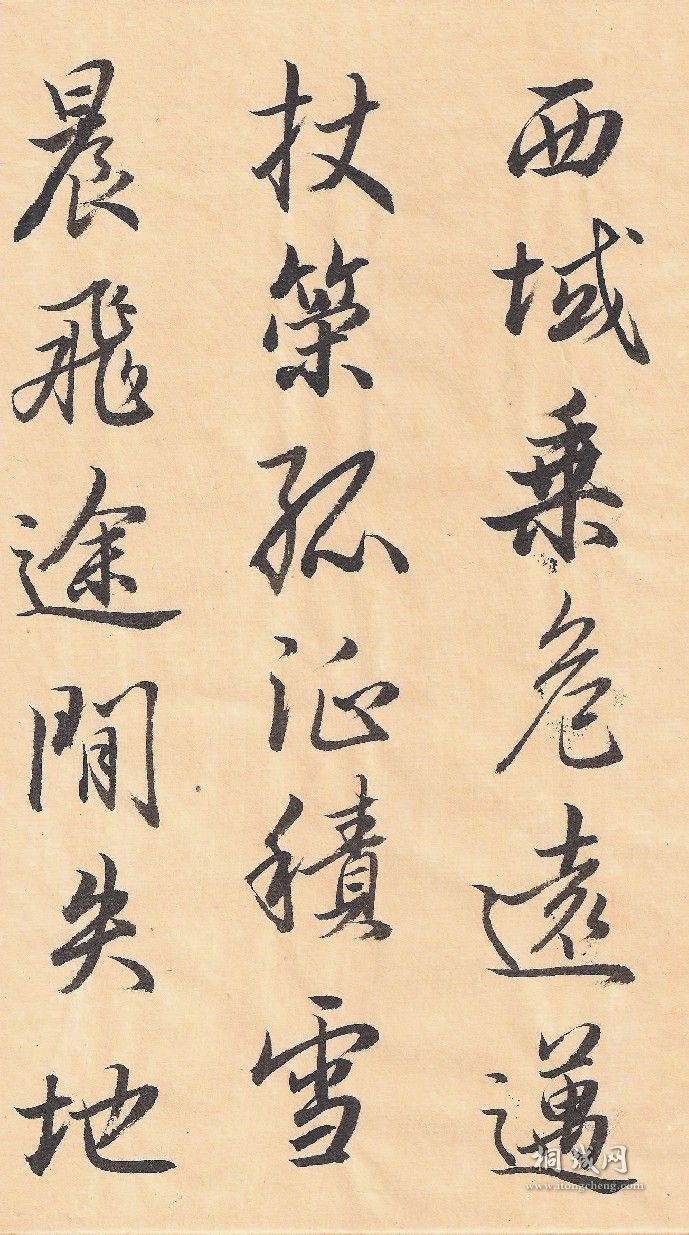 西域乘危遠邁
杖策孤征積雪
晨飛途閒失地
桐城网
www.itongcheng.com